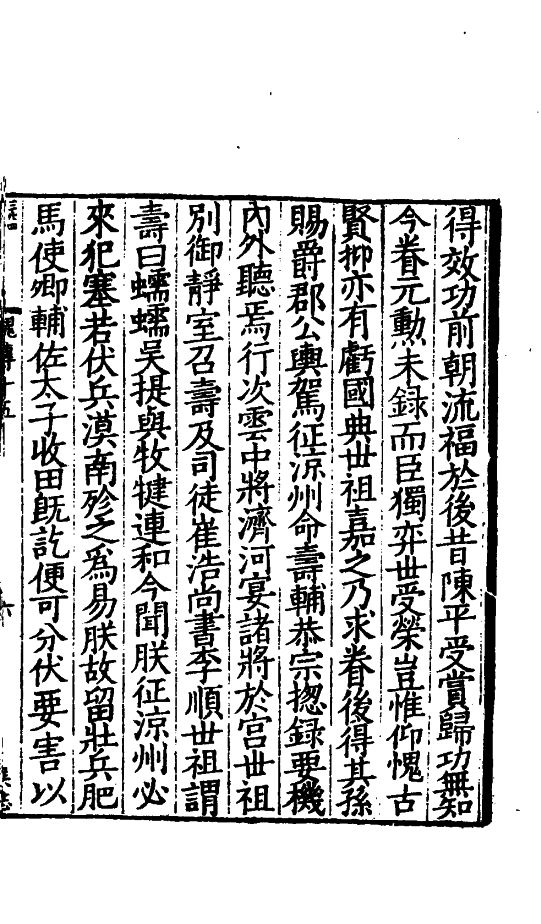 得效功前朝流福於後昔陳平受賞歸功無知
今眷元勳未錄而臣獨弈世受榮豈惟仰愧古
賢抑亦有虧國典世祖嘉之乃求眷後得其孫
賜爵郡公輿駕征涼州命壽輔恭宗揔録要機
內外聽焉行次雲中將濟河宴諸將於宮世祖
別御靜室召壽及司徒崔浩尚書李順世祖謂
壽曰蠕蠕吴提與牧犍連和今聞朕征涼州必
來犯塞若伏兵漠南殄之爲易朕故留壯兵肥
馬使卿輔佐太子收田旣訖便可分伏要害以
魏傳十五
六